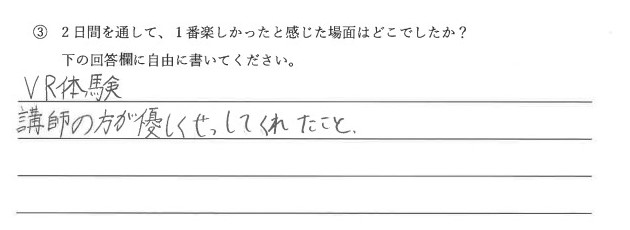 ③ 2日間を通して、1番楽しかったと感じた場面はどこでしたか?
下の回答欄に自由に書いてください。
VR体験
講師の方が優しくせっしてくれたこと.